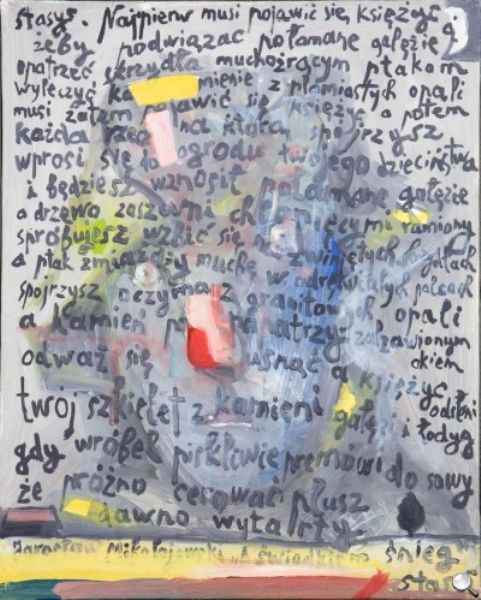 stasys. Najpierw musi pojawić się księżyc
żeby podwiązać połamane gałęzie
opatrzeć skrzydła muchożrącym ptakom
wyłeczyć kamienie z płomiastych opali
musi zatem pojawić się księżyc a potem
każda rzecz na którą spojrzysz
wprosi się do ogrodu twojego dzieciństwa
i będziesz wznosił połamane gałęzie
a drzewo zaszumi chrapiącymi ramiony
spróbujesz wzbić się na zwiniętych
a ptak zmiażdży muchę w odrękawiałych palcach
spojrzysz oczyma z granitowych opali
a kamień popatrzy załzawionym okiem
odważ się usnąć a księżyc
twój szkielet z kamieni gałęzi i łodyg oddzieli
gdy wróbel piskliwie przemówi do sowy
że próżno cerować plusz
dawno wytarty
Jarosław Mikołajewski „A świadkiem śnieg"
stasys